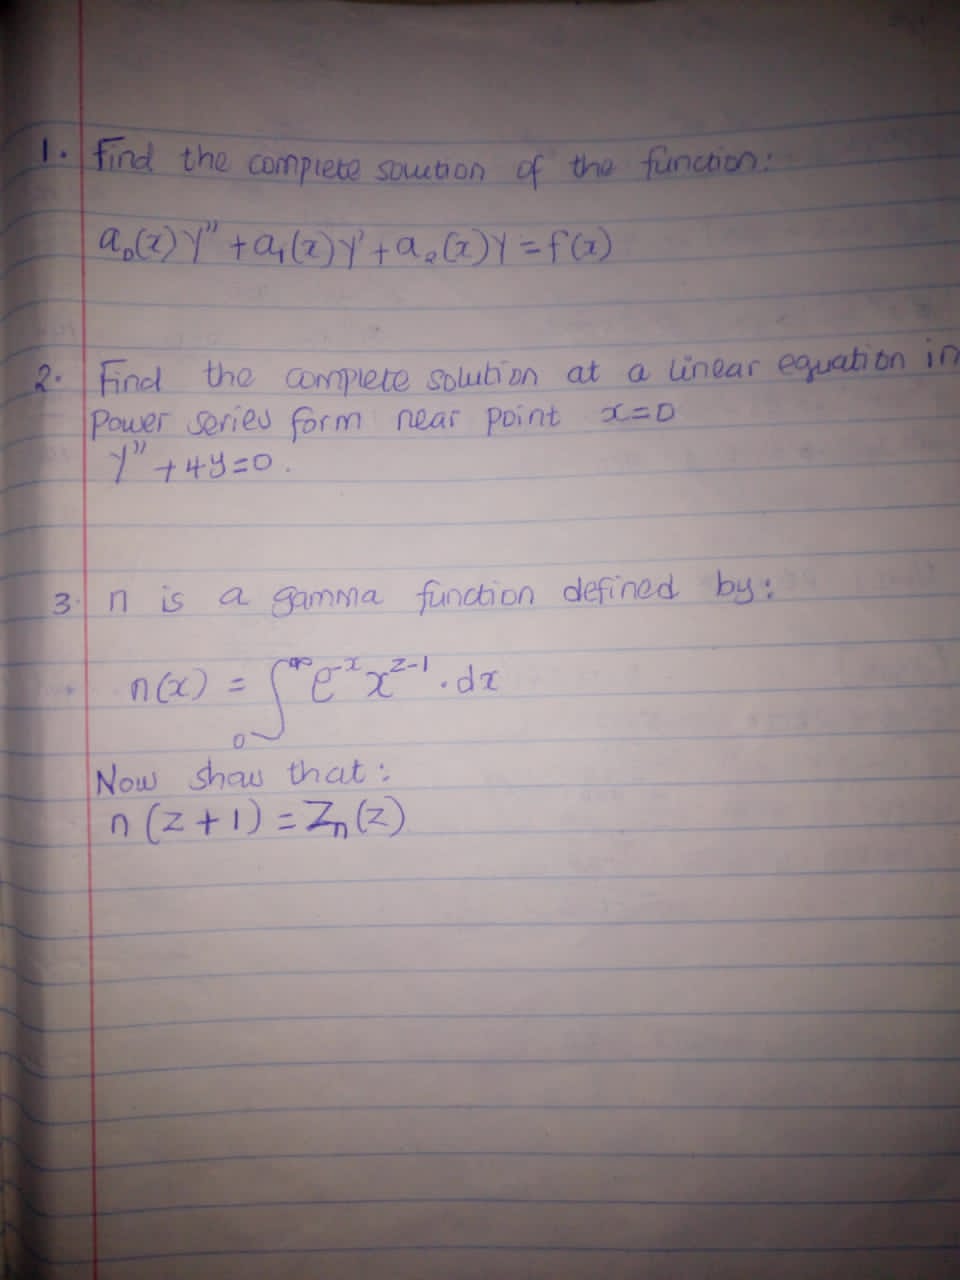 1. Find the complete solution of the function:
a₀(x)y" + a₁(x)y' + a₂(x)y = f(x)
2. Find the complete solution at a linear equation in
Power series form near point x=0
y" + 4y = 0.
3. n is a gamma function defined by:
n(x) = ∫₀^∞ e^-x x^z-1 . dx
Now show that:
n(z+1) = Zₙ(z)